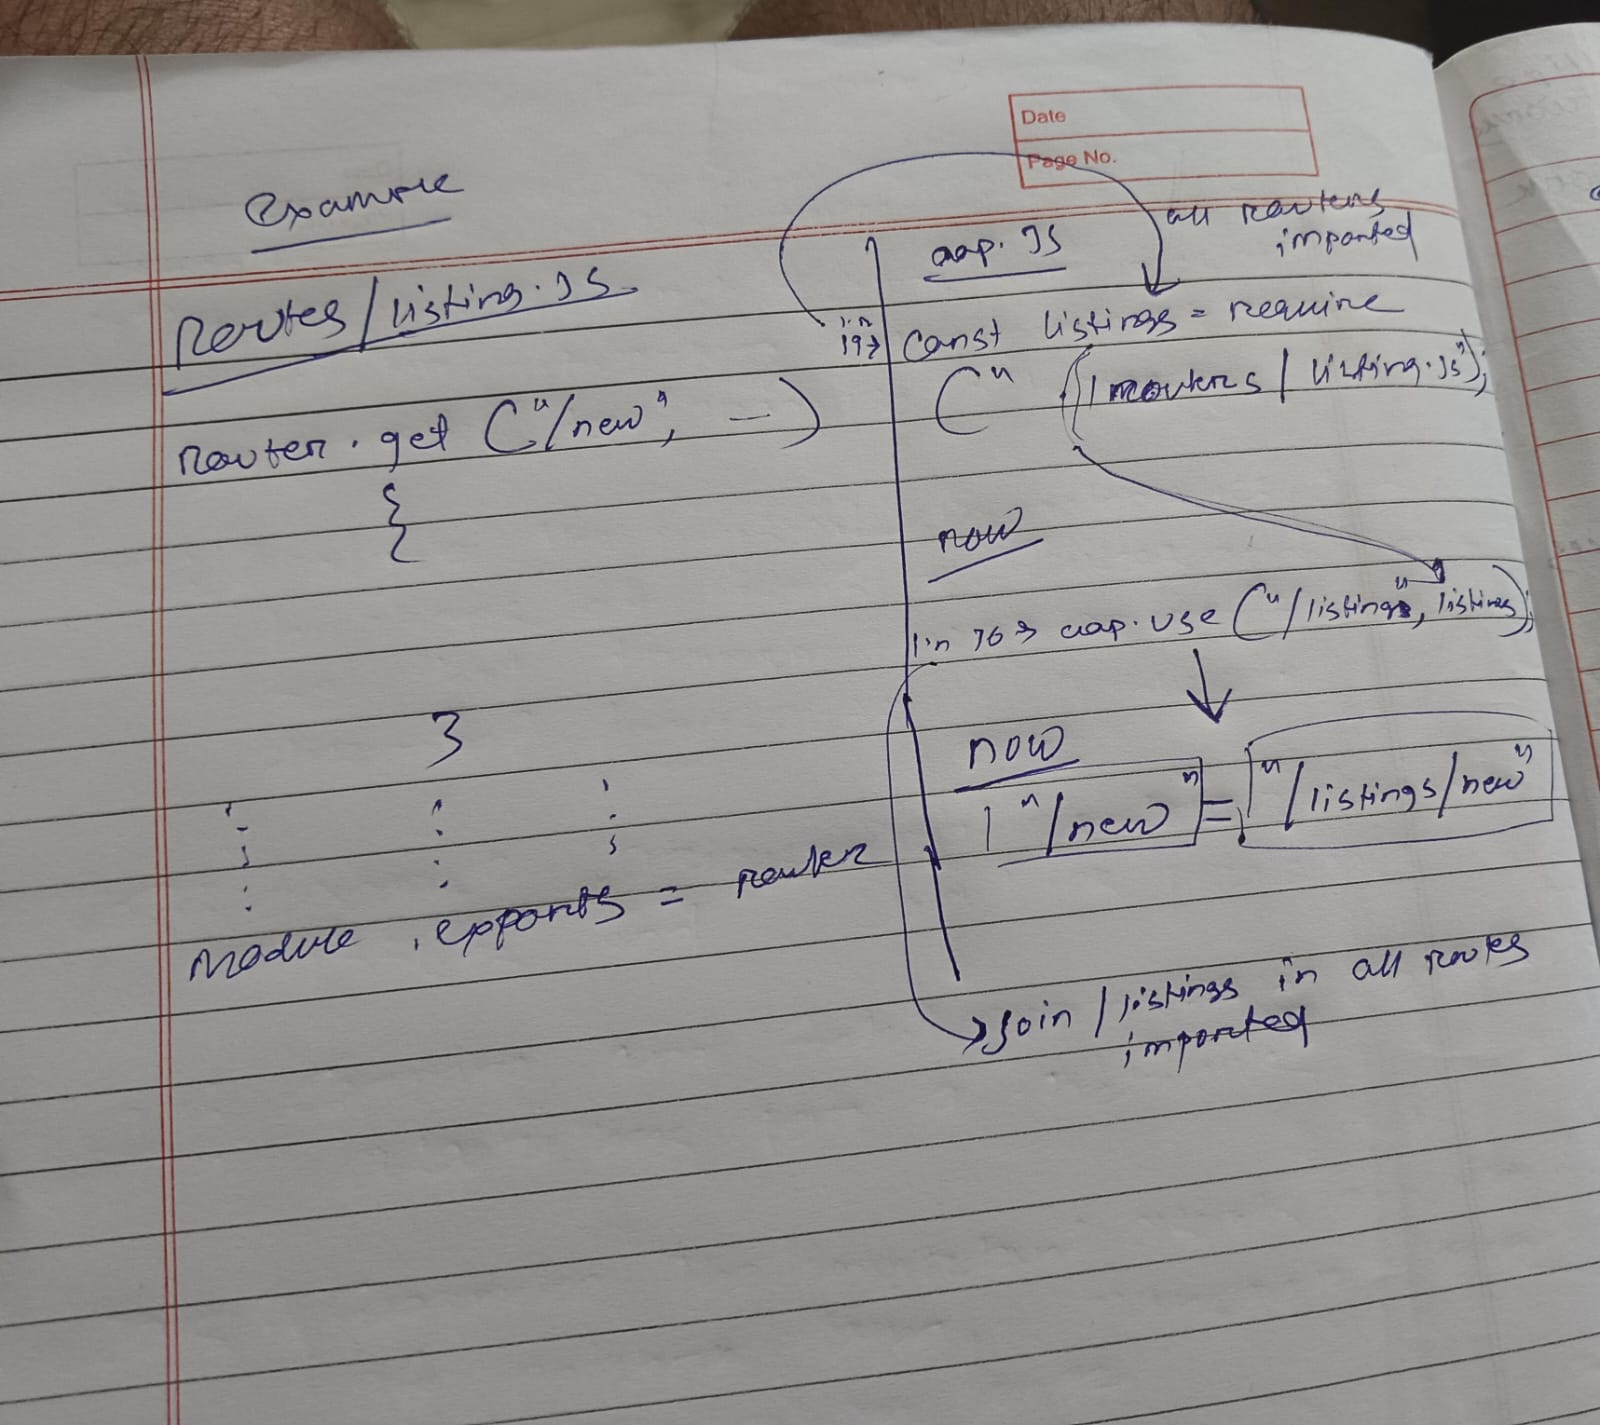 Date
Page No.
Example
Routes/listing.JS
router.get ("/new", —)
{
}
module.exports = router
app.JS
all routers
imported
in 19→ const listings = require
("/routers/listing.js");
now
in 76→ app.use("/listings", listings);
now
"/new" = "/listings/new"
→ join /listings in all routes
imported